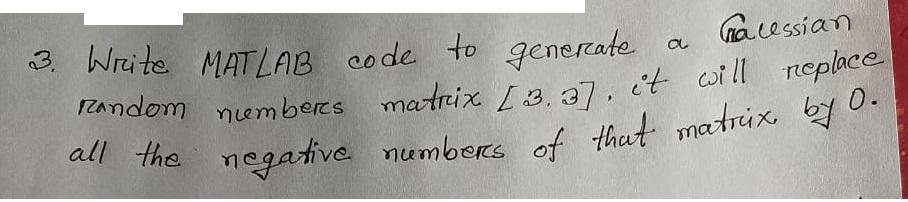 3. Write MATLAB code to generate a Gaussian
random numbers matrix [3.3], it will replace
all the negative numbers of that matrix by 0.